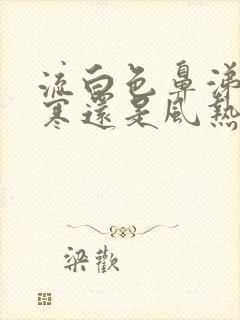 流白色鼻涕
寒還是風熱
梁歡